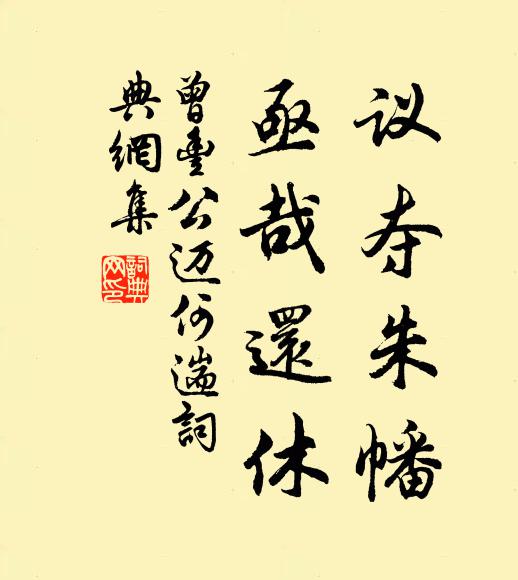 议夺朱幡
亟哉還休
曾豊公迈何遄詞
典網集
詞典網印